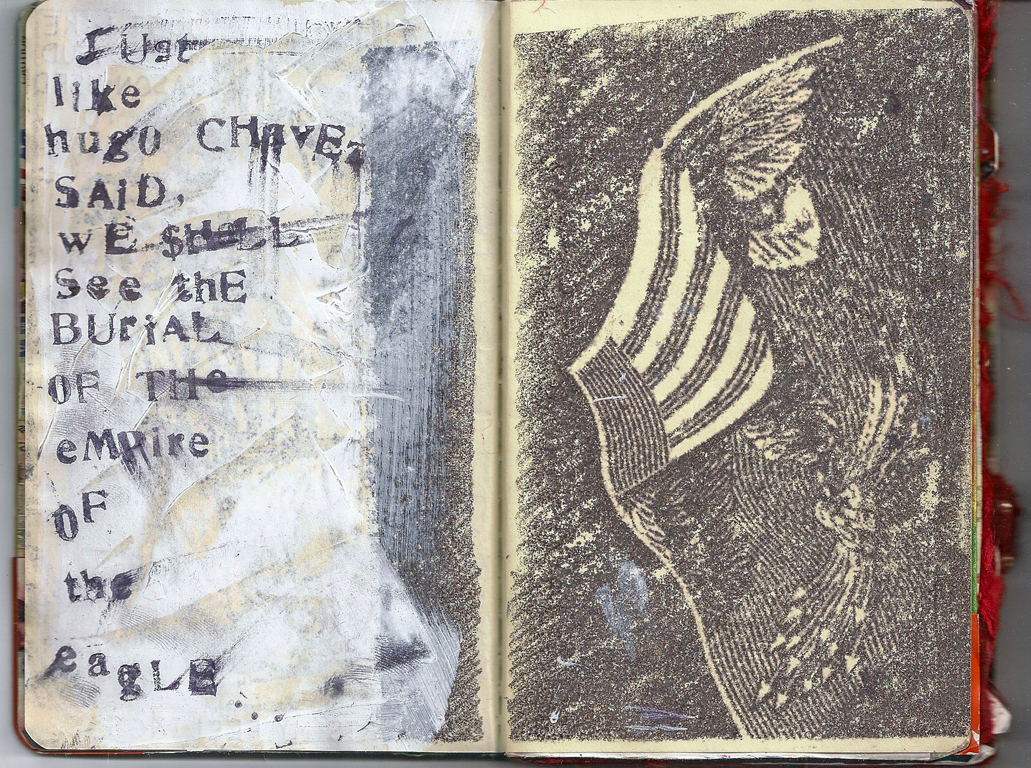 Just
like
hugo CHAVEz
SAiD,
wE SHALL
See thE
BUriAL
OF THe
eMPire
OF
the
eagLE